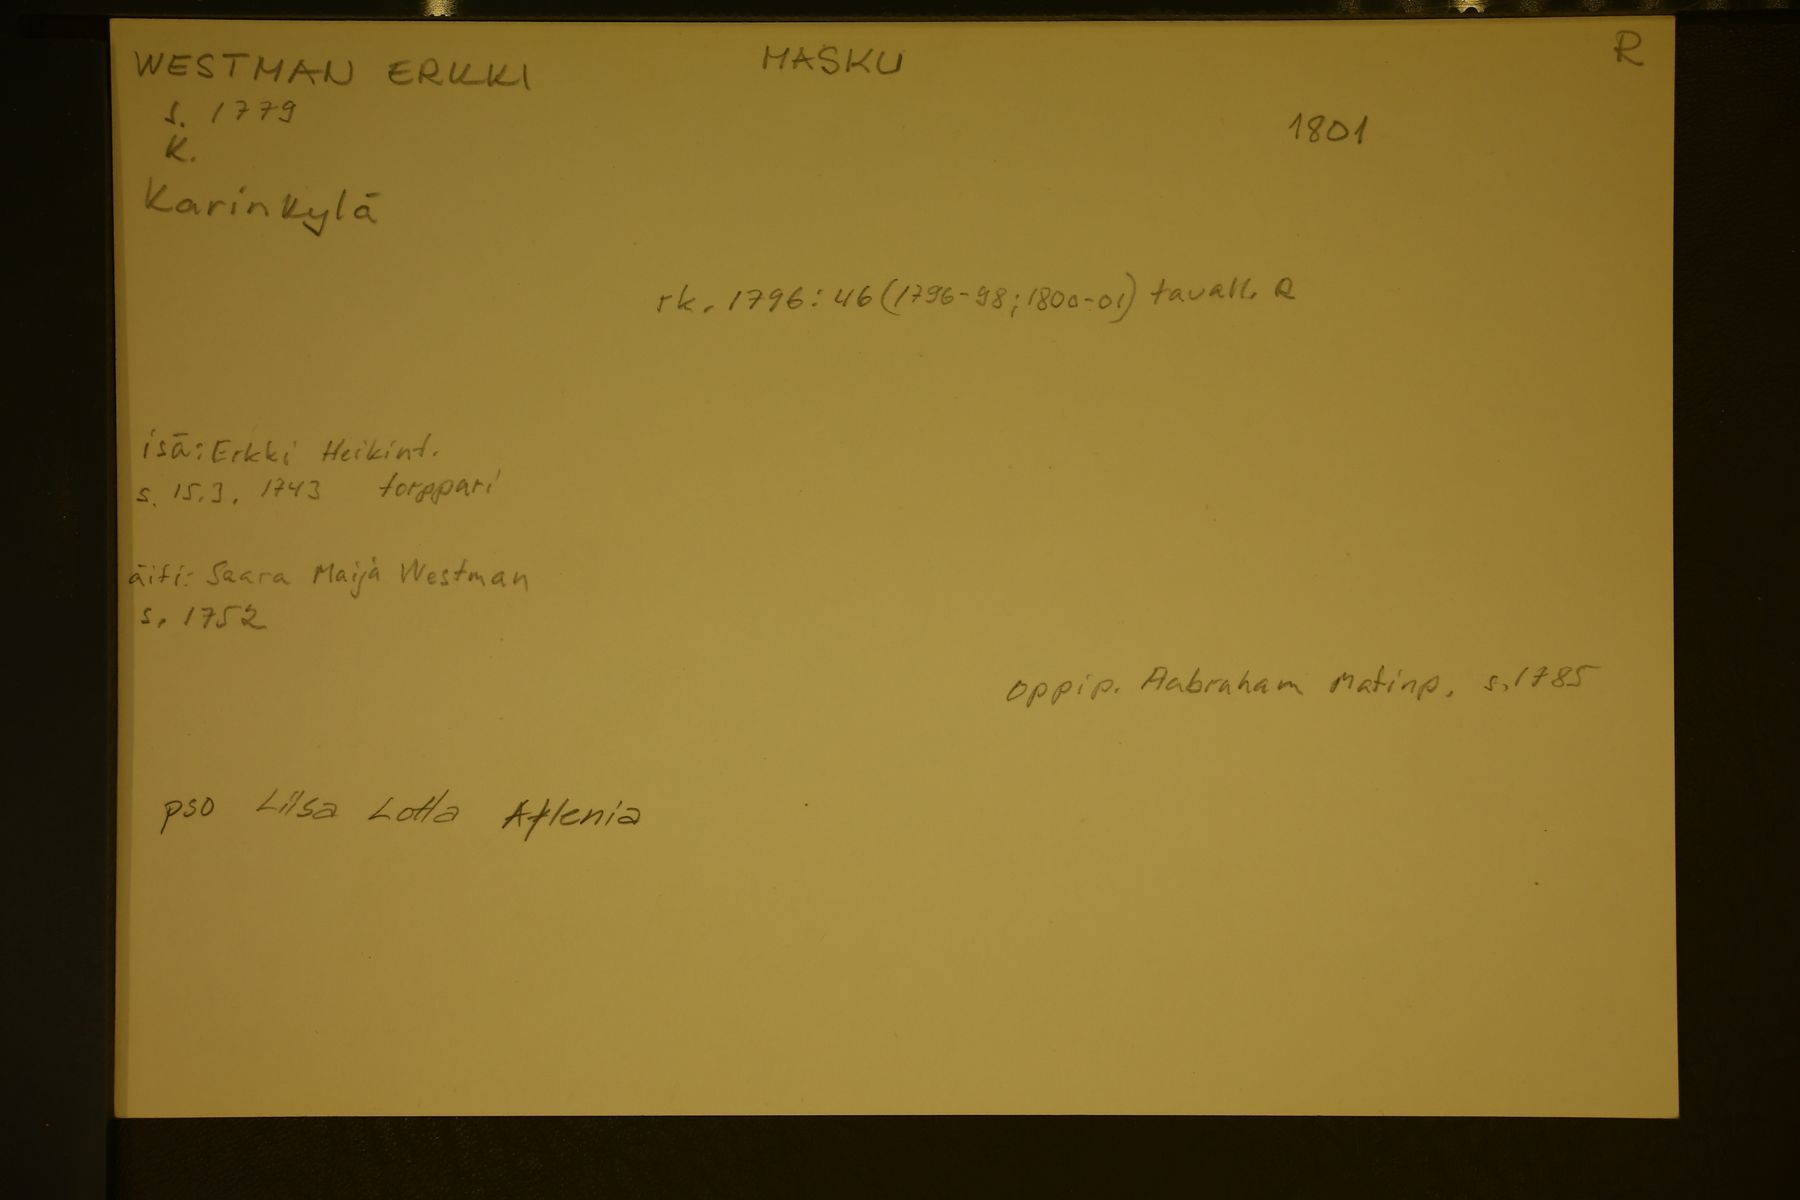 WESTMAN ERKKI MASKU R
s. 1779
1801
K.
Karinkylä
rk. 1796:46 (1796-98; 1800-01) tavall. R
isä: Erkki Heikint.
s. 15.3. 1743 torppari
äiti: Saara Maija Westman
s. 1752
oppip. Aabraham Matinp. s. 1785
pso Liisa Lotta